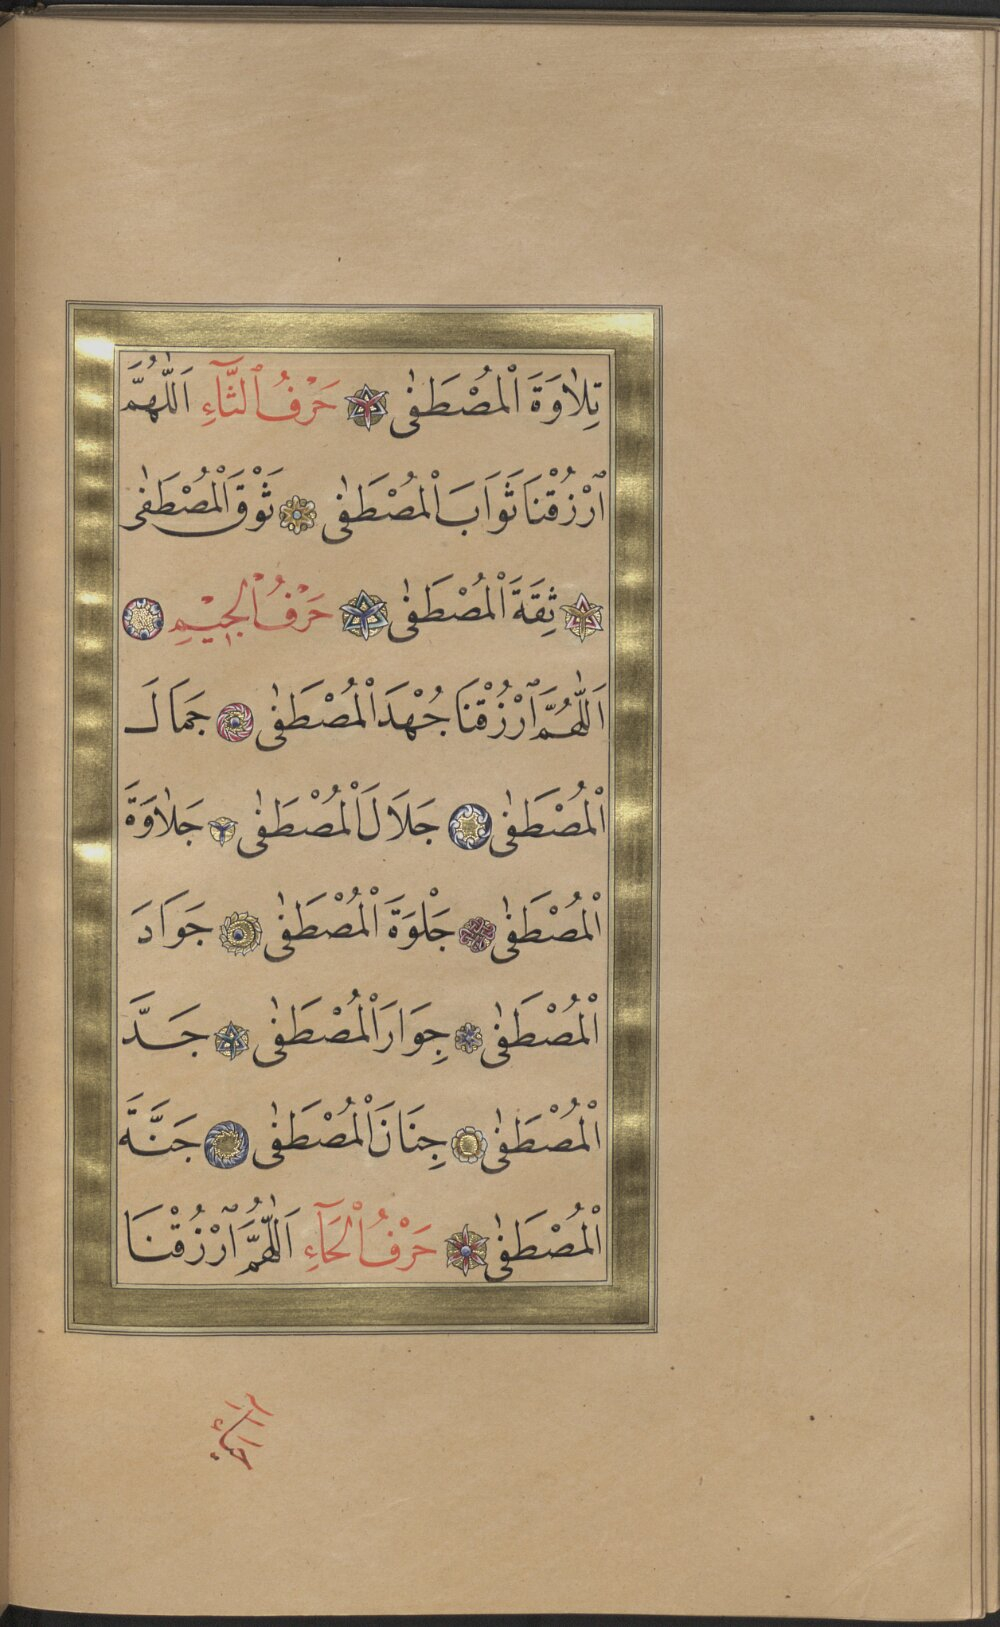 تِلَاوَةَ ٱلْمُصْطَفٰى حَرْفُ ٱلثَّآءِ اَللّٰهُمَّ
ٱرْزُقْنَا ثَوَابَ ٱلْمُصْطَفٰى ثَوْقَ ٱلْمُصْطَفٰى
ثِقَةَ ٱلْمُصْطَفٰى حَرْفُ ٱلْجِيْمِ
اَللّٰهُمَّ ٱرْزُقْنَا جُهْدَ ٱلْمُصْطَفٰى جَمَالَ
ٱلْمُصْطَفٰى جَلَالَ ٱلْمُصْطَفٰى جَلَاوَةَ
ٱلْمُصْطَفٰى جَلْوَةَ ٱلْمُصْطَفٰى جَوَادَ
ٱلْمُصْطَفٰى جِوَارَ ٱلْمُصْطَفٰى جَدَّ
ٱلْمُصْطَفٰى جِنَانَ ٱلْمُصْطَفٰى جَنَّةَ
ٱلْمُصْطَفٰى حَرْفُ ٱلْحَآءِ اَللّٰهُمَّ ٱرْزُقْنَا